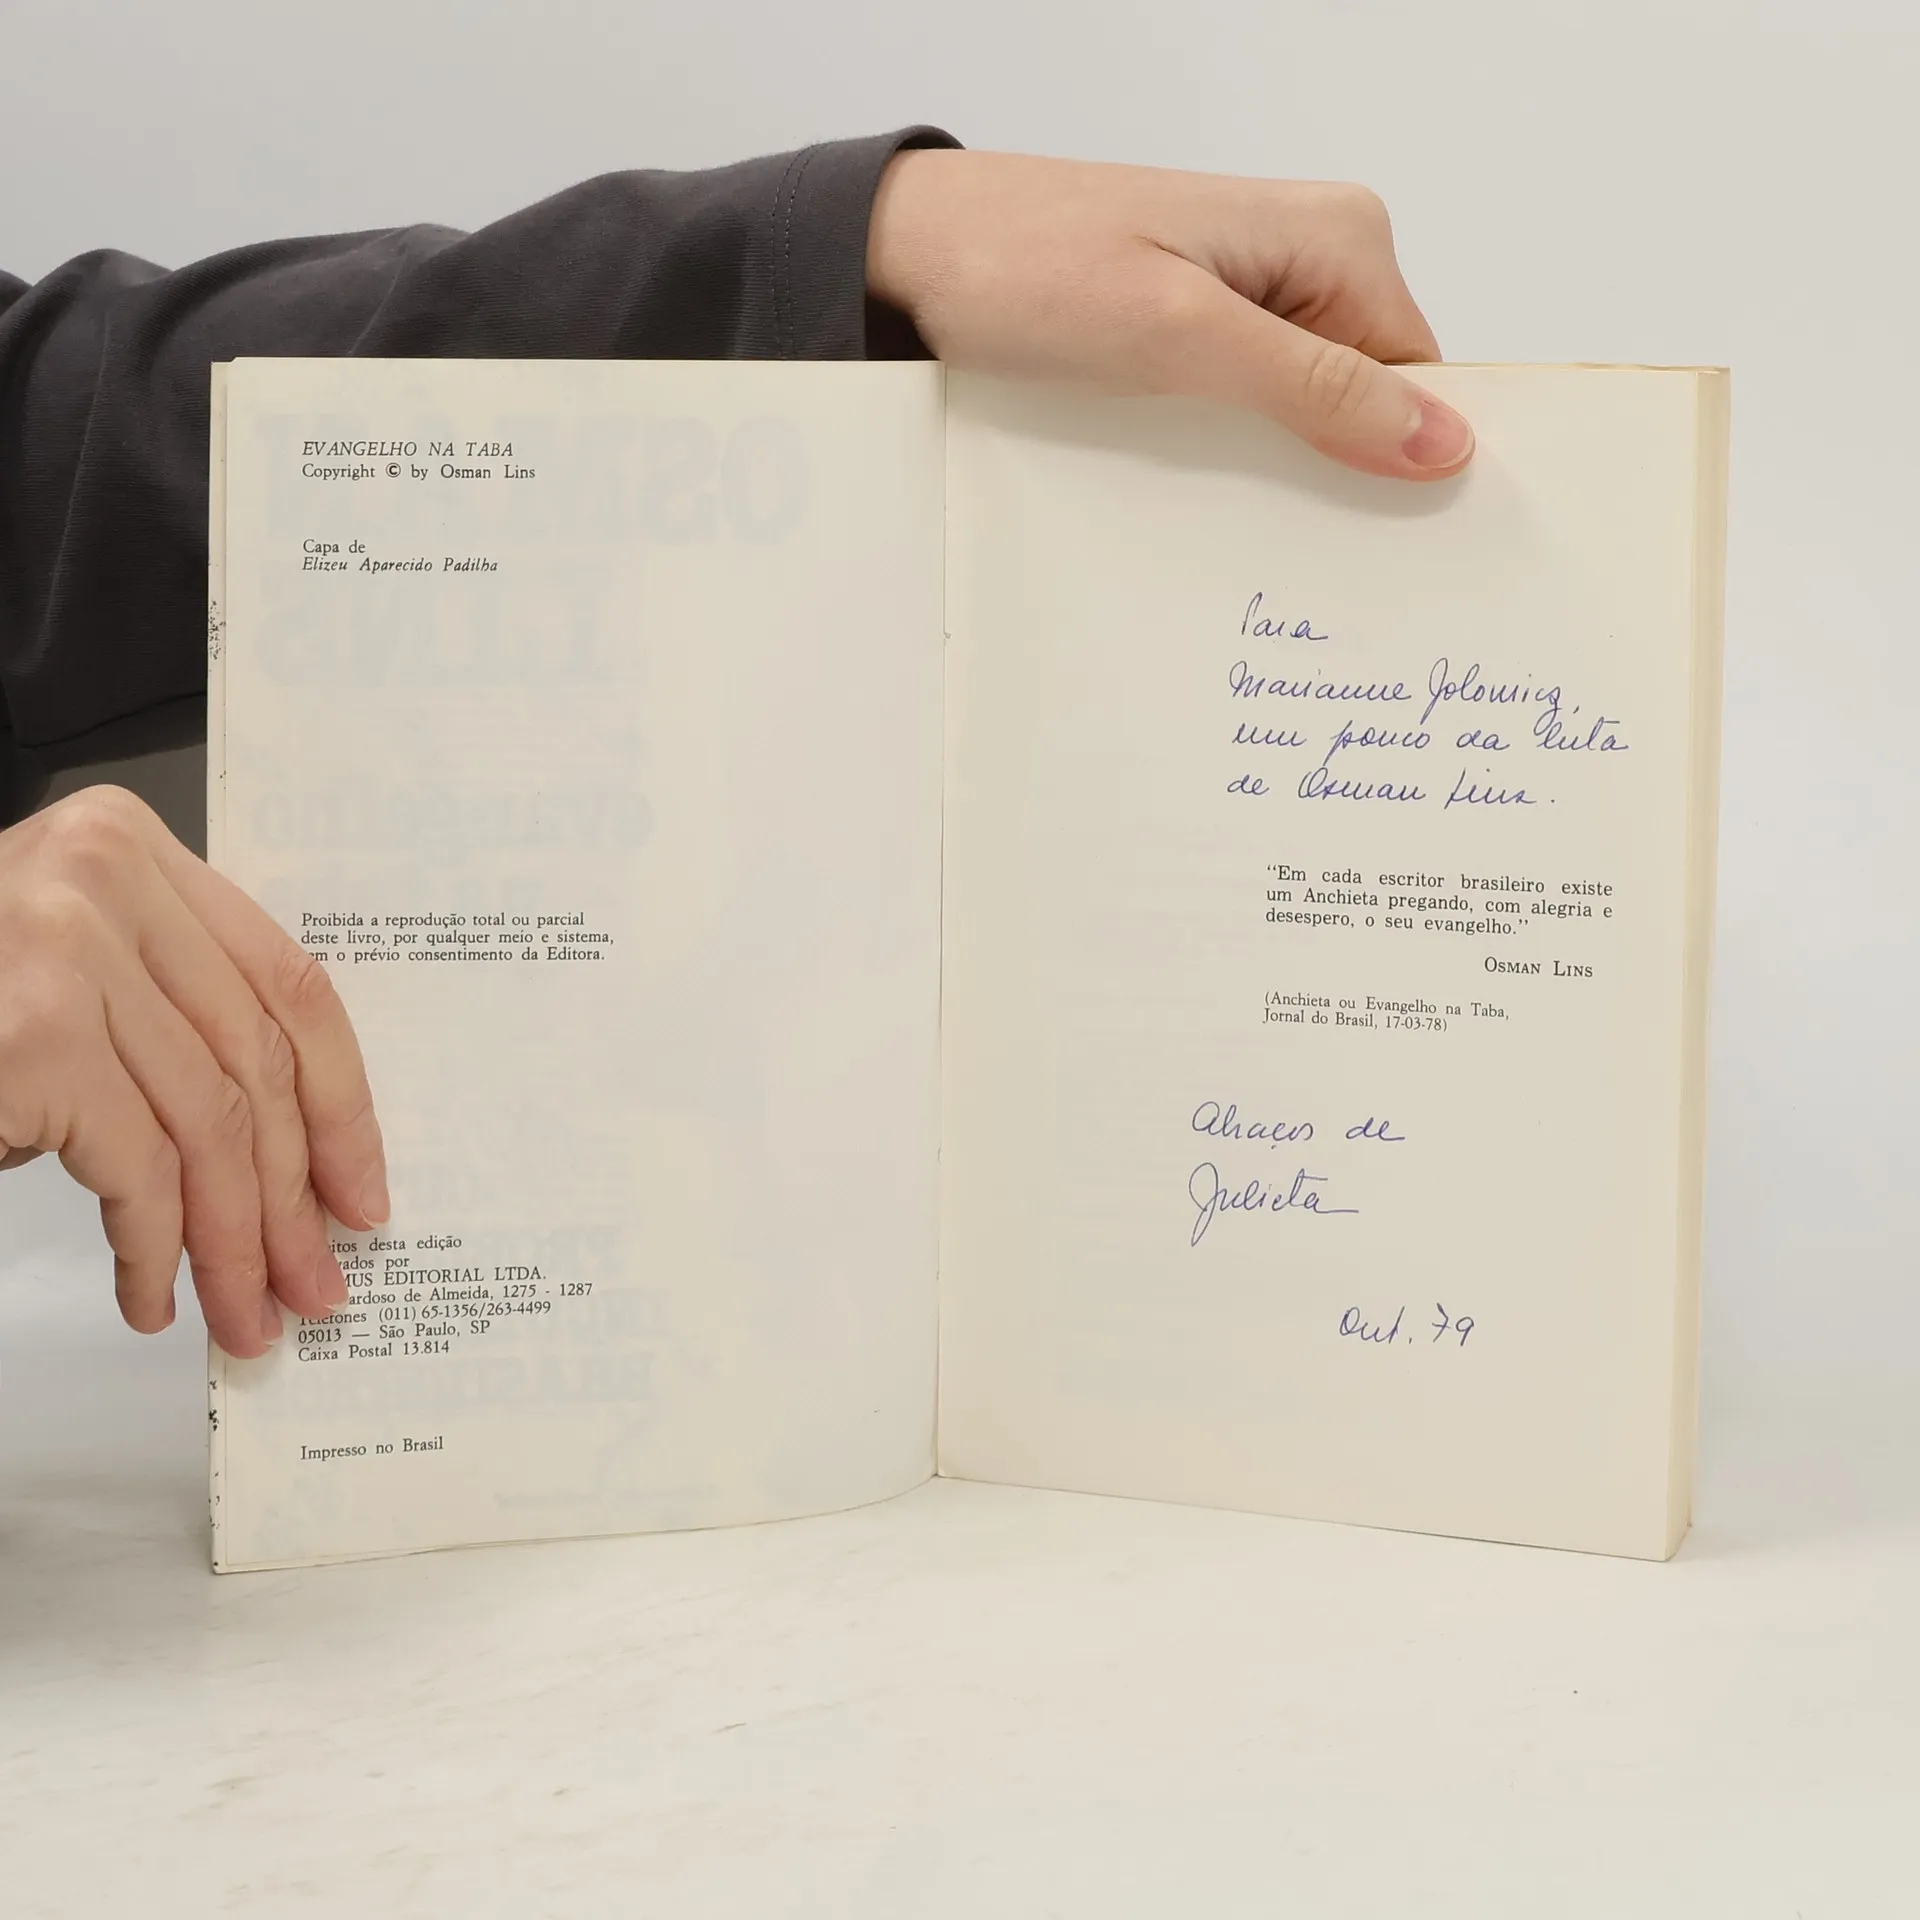 EVANGELHO NA TABA
Copyright © by Osman Lins
Capa de
Elizeu Aparecido Padilha
Proibida a reprodução total ou parcial
deste livro, por qualquer meio e sistema,
o prévio consentimento da Editora.
desta edição
por
EDITORIAL LTDA.
de Almeida, 1275 - 1287
Telefones (011) 65-1356/263-4499
05013 — São Paulo, SP
Caixa Postal 13.814
Impresso no Brasil
Para
Marianne Jolowicz,
um pouco da luta
de Osman Lins.
“Em cada escritor brasileiro existe
um Anchieta pregando, com alegria e
desespero, o seu evangelho.”
OSMAN LINS
(Anchieta ou Evangelho na Taba,
Jornal do Brasil, 17-03-78)
Abraços de
Julieta
Out. 79